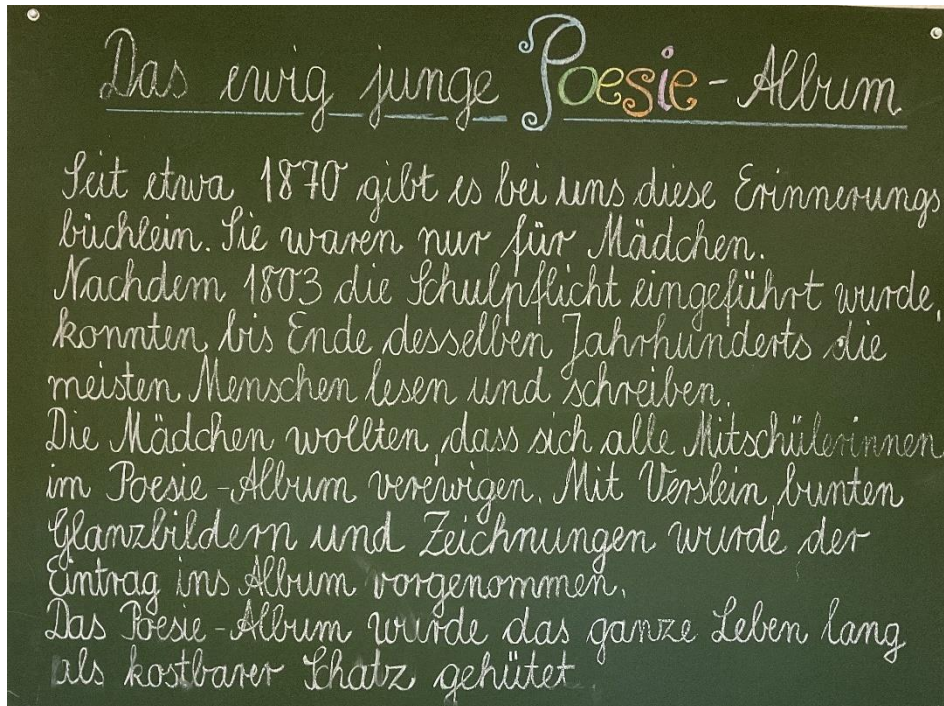 Das ewig junge Poesie-Album
Seit etwa 1870 gibt es bei uns diese Erinnerungs
büchlein. Sie waren nur für Mädchen.
Nachdem 1803 die Schulpflicht eingeführt wurde,
konnten bis Ende desselben Jahrhunderts die
meisten Menschen lesen und schreiben.
Die Mädchen wollten, dass sich alle Mitschülerinnen
im Poesie-Album verewigen. Mit Verslein, bunten
Glanzbildern und Zeichnungen wurde der
Eintrag ins Album vorgenommen.
Das Poesie-Album wurde das ganze Leben lang
als kostbarer Schatz gehütet.